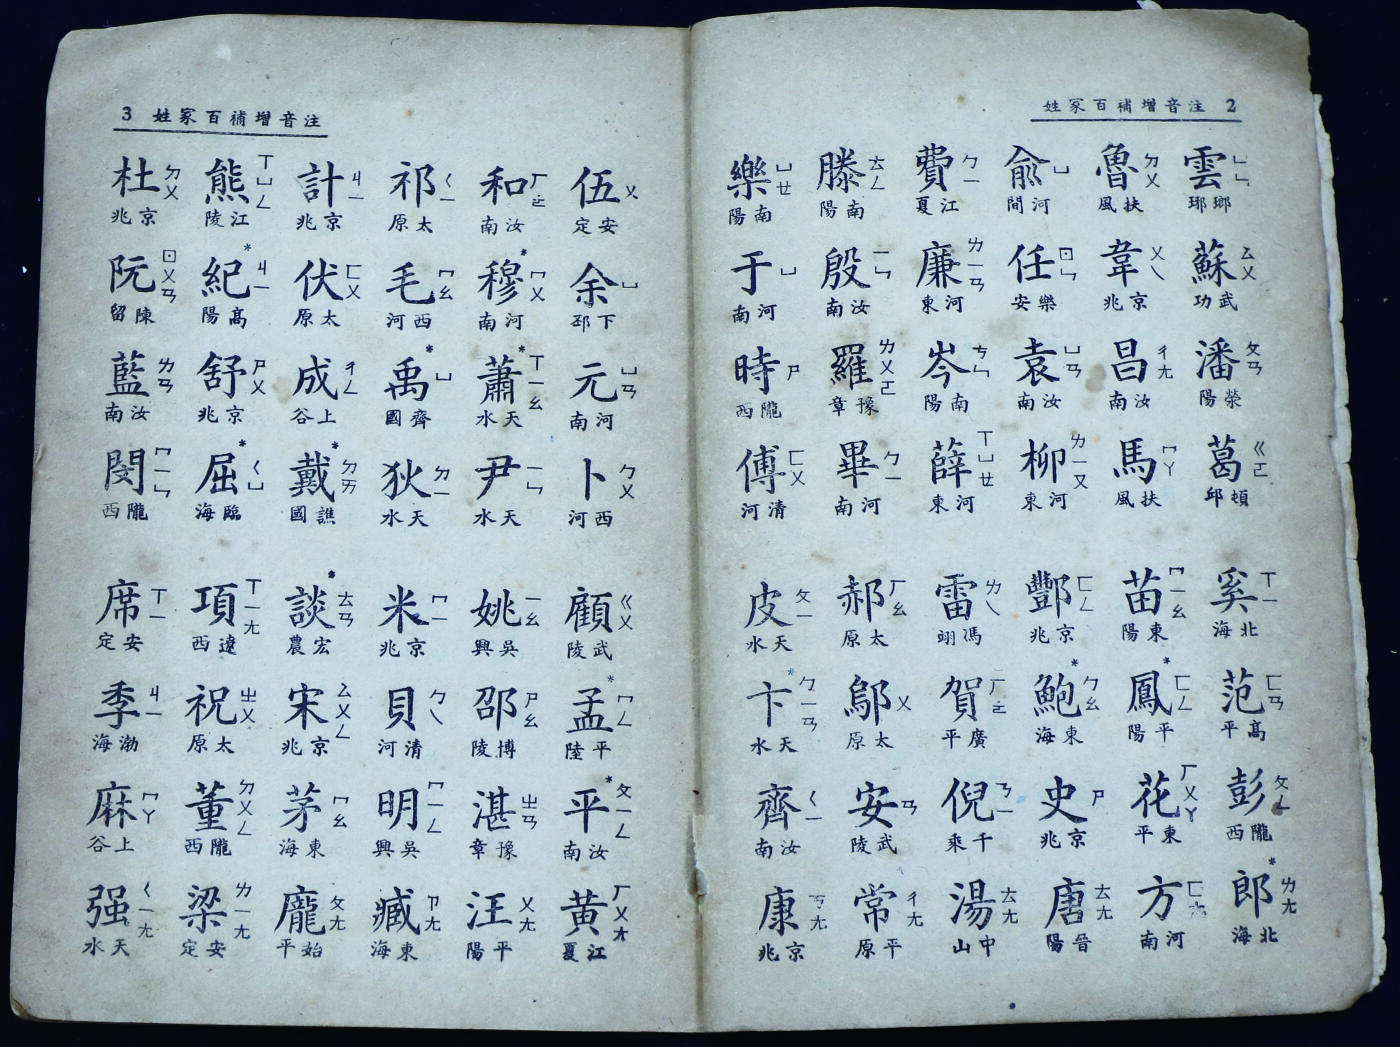 2 注音增補百家姓
雲 ㄩㄣ 瑯琊 蘇 ㄙㄨ 武功 潘 ㄆㄢ 滎陽 葛 ㄍㄛ 頓邱
奚 ㄒㄧ 北海 范 ㄈㄢ 高平 彭 ㄆㄥ 隴西 *郎 ㄌㄤ 北海
魯 ㄌㄨ 扶風 韋 ㄨㄟ 京兆 昌 ㄔㄤ 汝南 馬 ㄇㄚ 扶風
苗 ㄇㄧㄠ 東陽 *鳳 ㄈㄥ 平陽 花 ㄏㄨㄚ 東平 方 ㄈㄤ 河南
俞 ㄩ 河間 任 ㄖㄣ 樂安 袁 ㄩㄢ 汝南 柳 ㄌㄧㄡ 河東
酆 ㄈㄥ 京兆 *鮑 ㄅㄠ 東海 史 ㄕ 京兆 唐 ㄊㄤ 晉陽
費 ㄅㄧ 江夏 廉 ㄌㄧㄢ 河東 岑 ㄘㄣ 南陽 薛 ㄒㄩㄝ 河東
雷 ㄌㄟ 馮翊 賀 ㄏㄜ 廣平 倪 ㄋㄧ 千乘 湯 ㄊㄤ 中山
滕 ㄊㄥ 南陽 殷 ㄧㄣ 汝南 羅 ㄌㄨㄛ 豫章 畢 ㄅㄧ 河南
郝 ㄏㄠ 太原 鄔 ㄨ 太原 安 ㄢ 武陵 常 ㄔㄤ 平原
樂 ㄩㄝ 南陽 于 ㄩ 河南 時 ㄕ 隴西 傅 ㄈㄨ 清河
皮 ㄆㄧ 天水 *卞 ㄅㄧㄢ 天水 齊 ㄑㄧ 汝南 康 ㄎㄤ 京兆
注音增補百家姓 3
伍 ㄨ 安定 余 ㄩ 下邳 元 ㄩㄢ 河南 卜 ㄅㄨ 西河
顧 ㄍㄨ 武陵 *孟 ㄇㄥ 平陸 *平 ㄆㄧㄥ 汝南 黃 ㄏㄨㄤ 江夏
和 ㄏㄜ 汝南 *穆 ㄇㄨ 河南 *蕭 ㄒㄧㄠ 天水 尹 ㄧㄣ 天水
姚 ㄧㄠ 吳興 邵 ㄕㄠ 博陵 湛 ㄓㄢ 豫章 汪 ㄨㄤ 平陽
祁 ㄑㄧ 太原 毛 ㄇㄠ 西河 *禹 ㄩ 齊國 狄 ㄉㄧ 天水
米 ㄇㄧ 京兆 貝 ㄅㄟ 清河 明 ㄇㄧㄥ 吳興 臧 ㄗㄤ 東海
計 ㄐㄧ 京兆 伏 ㄈㄨ 太原 成 ㄔㄥ 上谷 *戴 ㄉㄞ 譙國
*談 ㄊㄢ 宏農 宋 ㄙㄨㄥ 京兆 茅 ㄇㄠ 東海 龐 ㄆㄤ 始平
熊 ㄒㄩㄥ 江陵 *紀 ㄐㄧ 高陽 舒 ㄕㄨ 京兆 *屈 ㄑㄩ 臨海
項 ㄒㄧㄤ 遼西 祝 ㄓㄨ 太原 董 ㄉㄨㄥ 隴西 梁 ㄌㄧㄤ 安定
杜 ㄉㄨ 京兆 阮 ㄖㄨㄢ 陳留 藍 ㄌㄢ 汝南 閔 ㄇㄧㄣ 隴西
席 ㄒㄧ 安定 季 ㄐㄧ 渤海 麻 ㄇㄚ 上谷 强 ㄑㄧㄤ 天水